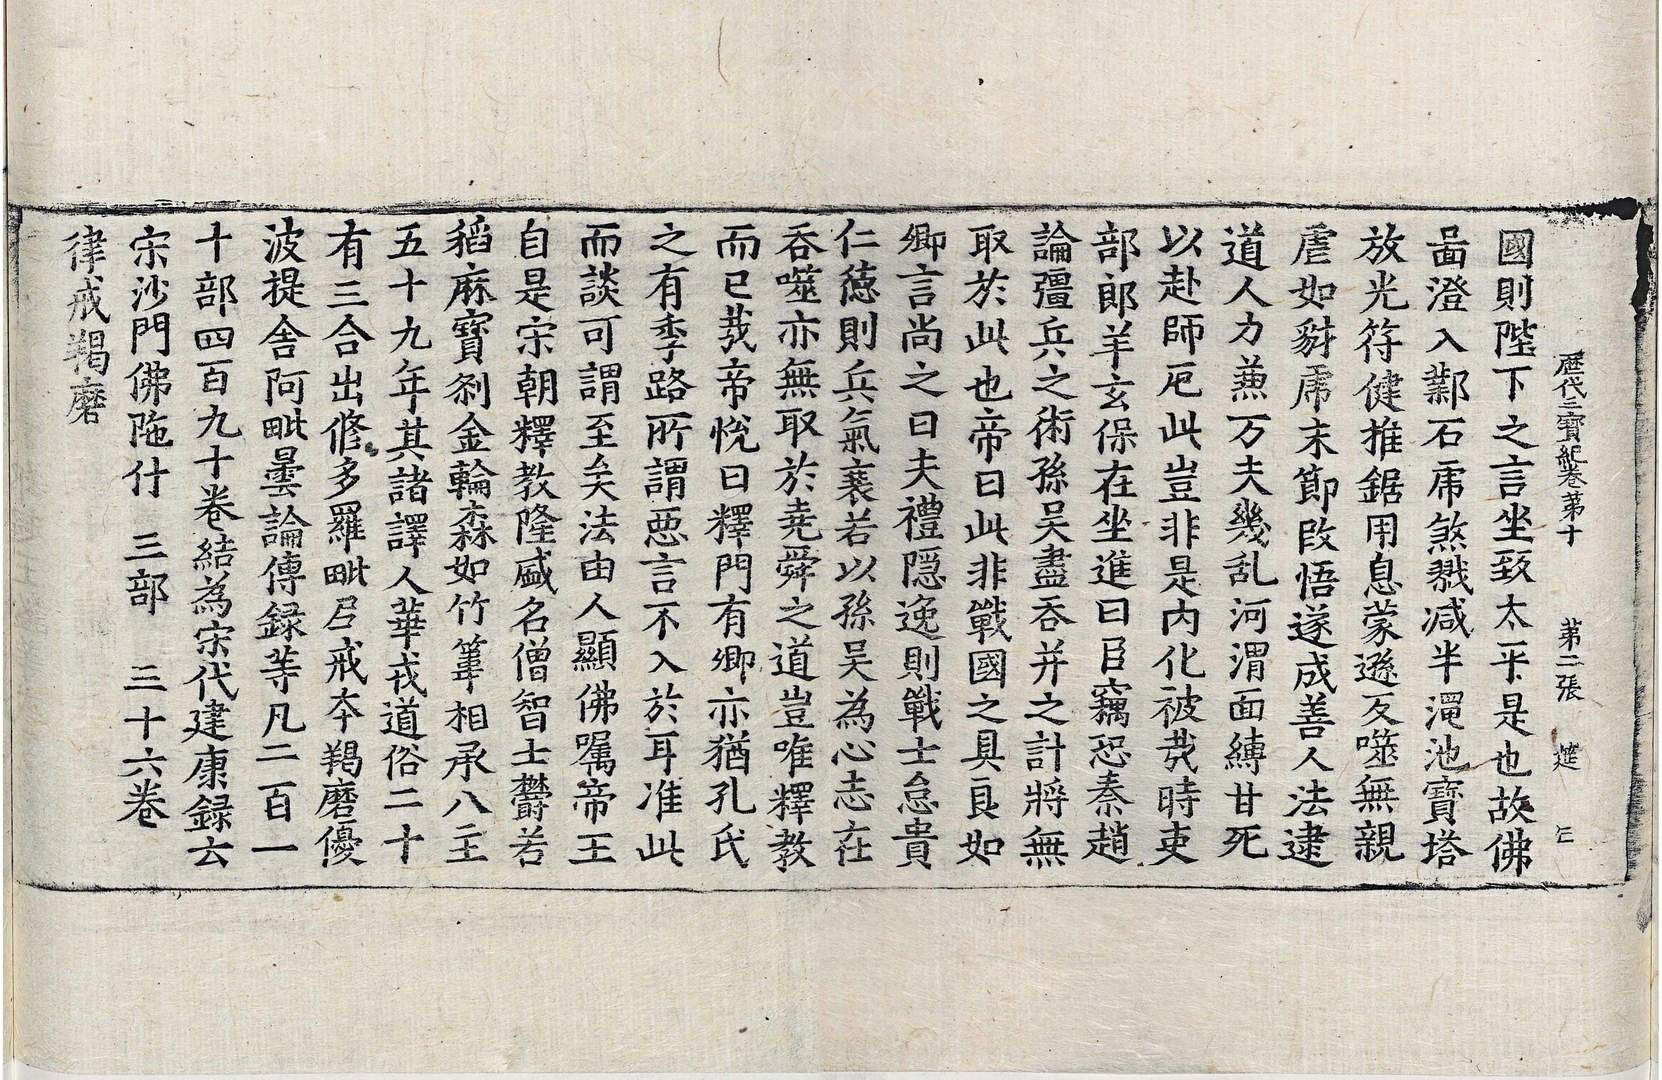 歷代三寶紀卷第十 第二張 筵
國則陛下之言坐致太平是也故佛
啚澄入鄴石虎煞戮減半澠池寶塔
放光符健推鋸用息蒙遜反噬無親
虐如豺虎末節改悟遂成善人法逮
道人力兼万夫幾乱河渭面縛甘死
以赴師厄此豈非是内化被㦲時吏
部郎羊玄保在坐進曰臣竊恐秦趙
論彊兵之術孫吳盡吞并之計將無
取於此也帝曰此非戰國之具良如
卿言尚之曰夫禮隱逸則戰士怠貴
仁德則兵氣衰若以孫吳為心志在
吞噬亦無取於堯舜之道豈唯釋教
而已㦲帝悅曰釋門有卿亦猶孔氏
之有季路所謂惡言不入於耳准此
而談可謂至矣法由人顯佛囑帝王
自是宋朝釋教隆盛名僧智士欝若
稻麻寶刹金輪森如竹葦相承八主
五十九年其諸譯人華戎道俗二十
有三合出修多羅毗尼戒本羯磨優
波提舍阿毗曇論傳録等凡二百一
十部四百九十卷結為宋代建康録云
宋沙門佛陁什 三部 三十六卷
律戒羯磨